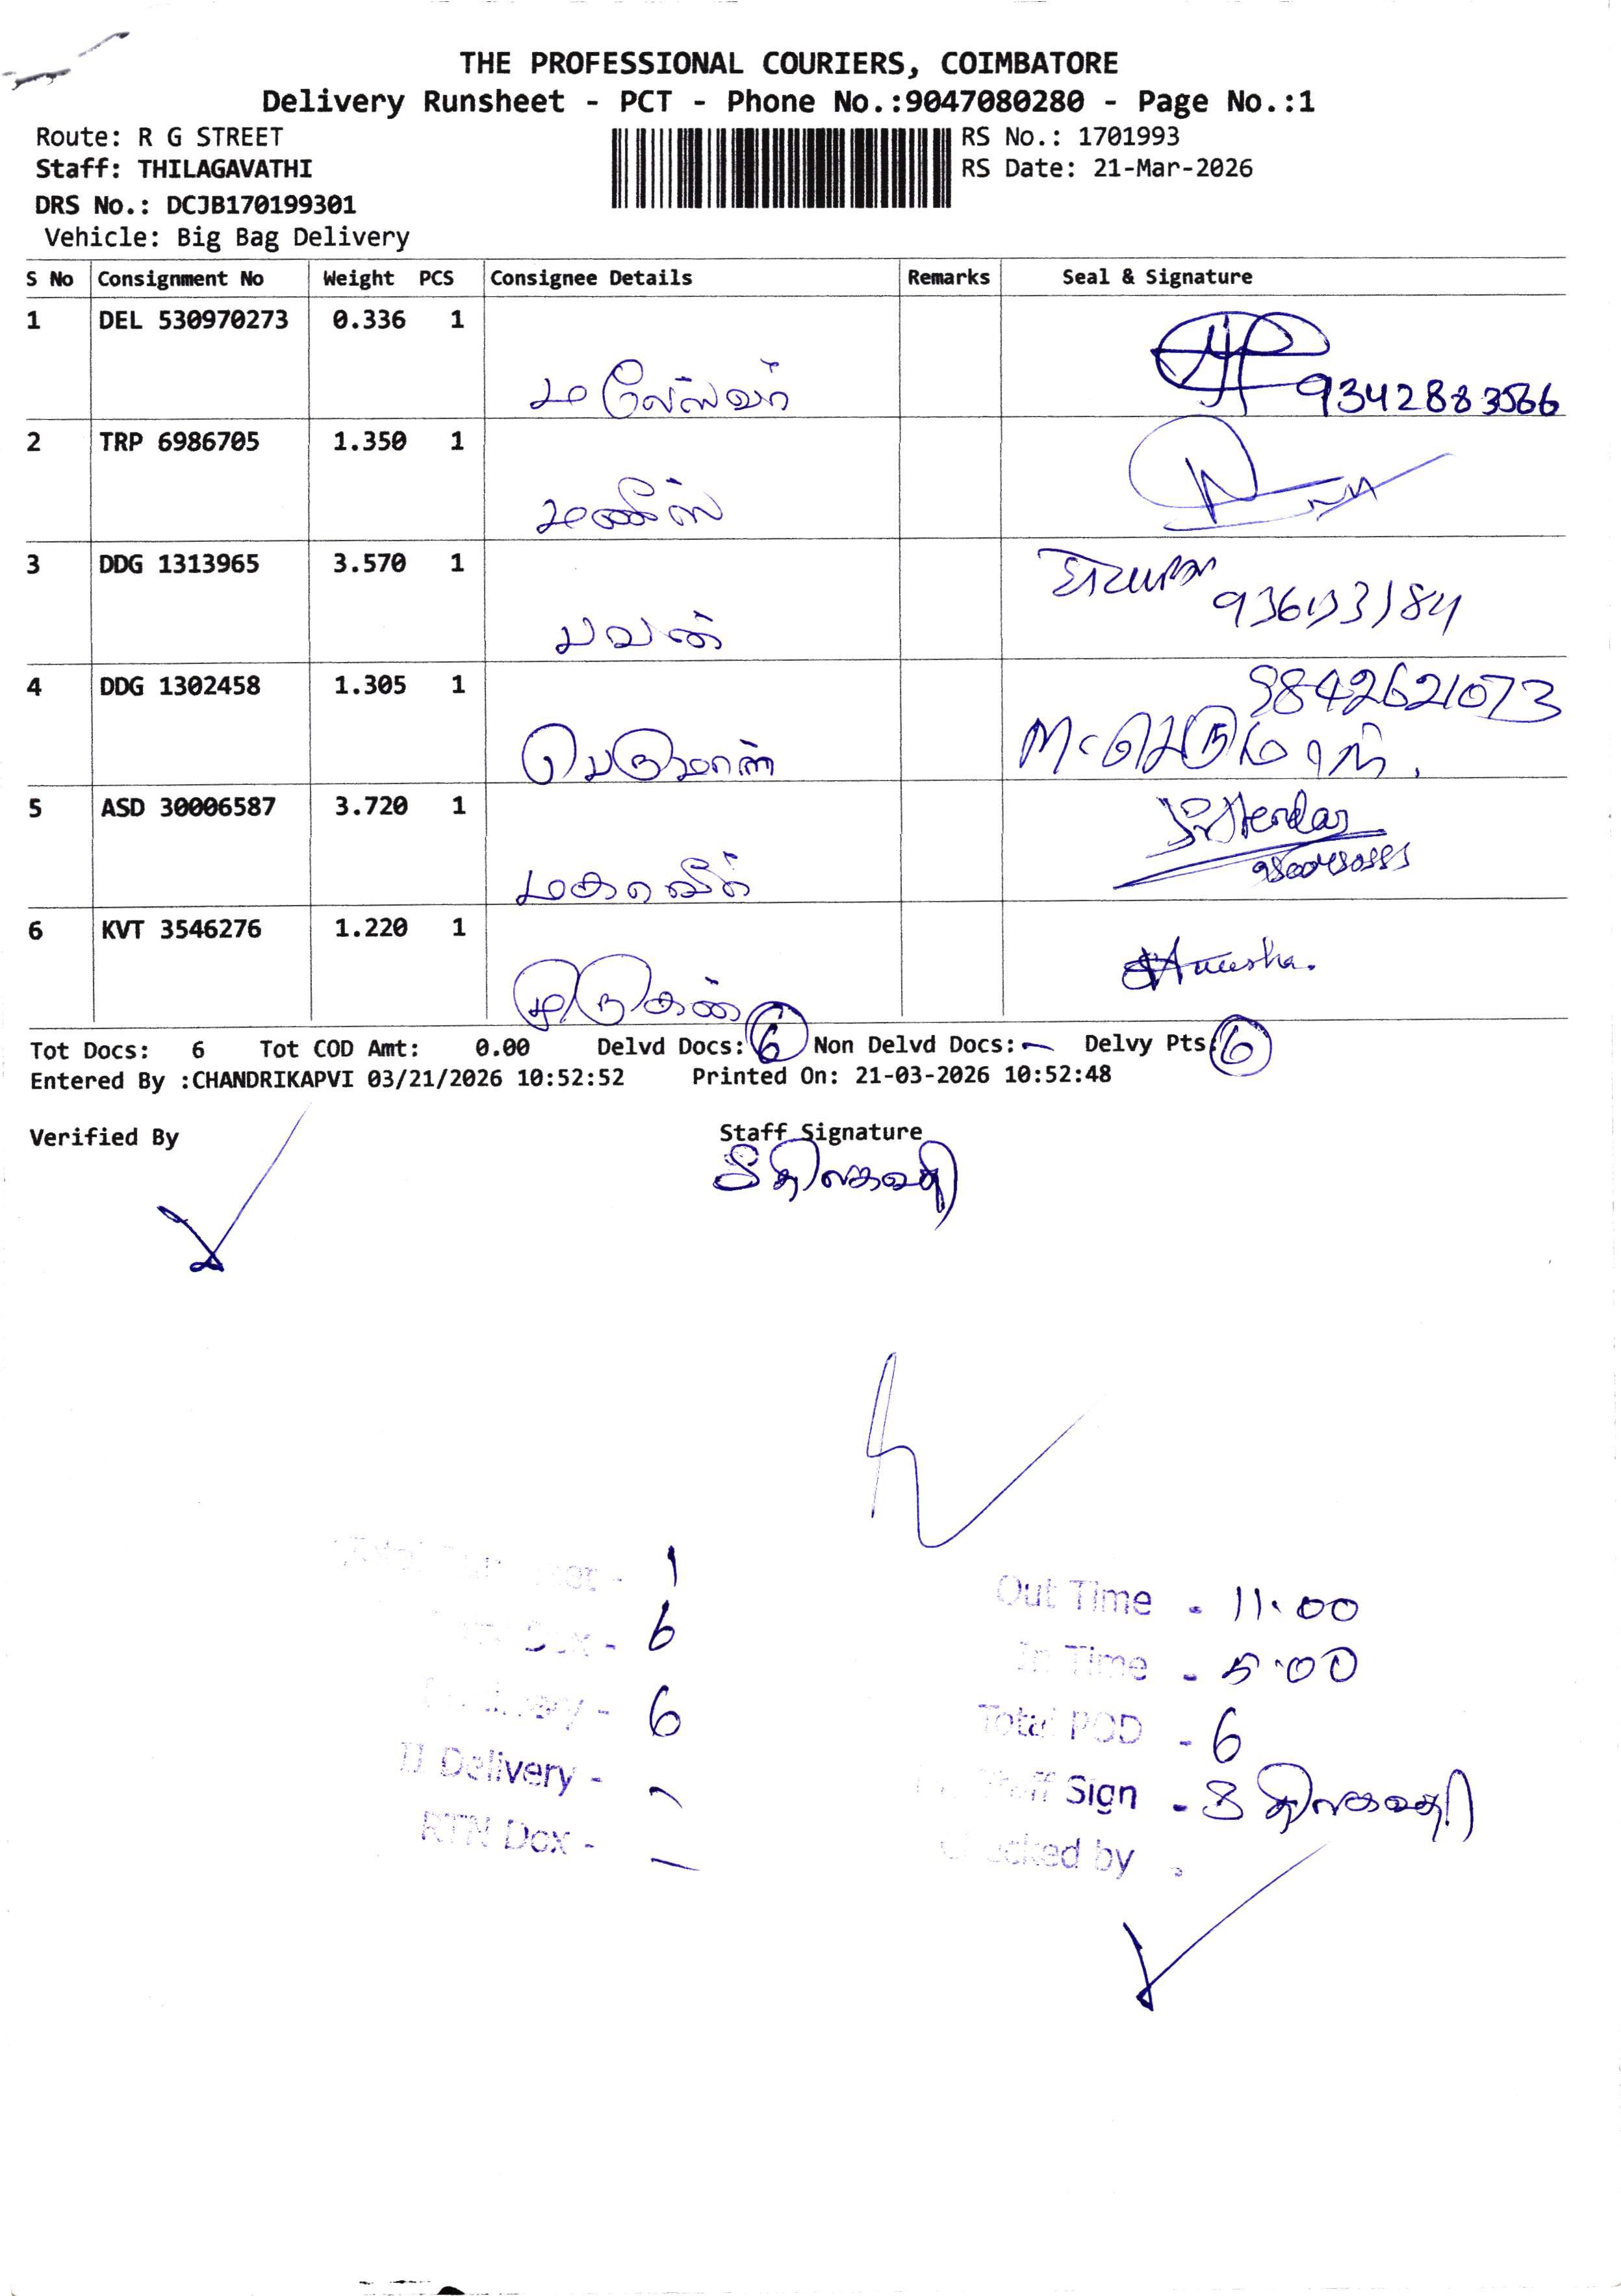 THE PROFESSIONAL COURIERS, COIMBATORE
Delivery Runsheet - PCT - Phone No.:9047080280 - Page No.:1
Route: R G STREET
RS No.: 1701993
Staff: THILAGAVATHI
RS Date: 21-Mar-2026
DRS No.: DCJB170199301
Vehicle: Big Bag Delivery
S No Consignment No Weight PCS Consignee Details Remarks Seal & Signature
1 DEL 530970273 0.336 1
9342883566
2 TRP 6986705 1.350 1
மணிஸ்
3 DDG 1313965 3.570 1
பவன்
4 DDG 1302458 1.305 1 9842621073
பெருமாள்
5 ASD 30006587 3.720 1
மகாவீர்
6 KVT 3546276 1.220 1 Anusha.
முருகன்
Tot Docs: 6 Tot COD Amt: 0.00 Delvd Docs: 6 Non Delvd Docs: - Delvy Pts: 6
Entered By :CHANDRIKAPVI 03/21/2026 10:52:52 Printed On: 21-03-2026 10:52:48
Verified By Staff Signature
திலகவதி
1
Out Time - 11.00
6
In Time - 5.00
6
Total POD - 6
Delivery -
Staff Sign - திலகவதி
RTN Dox -
Checked by